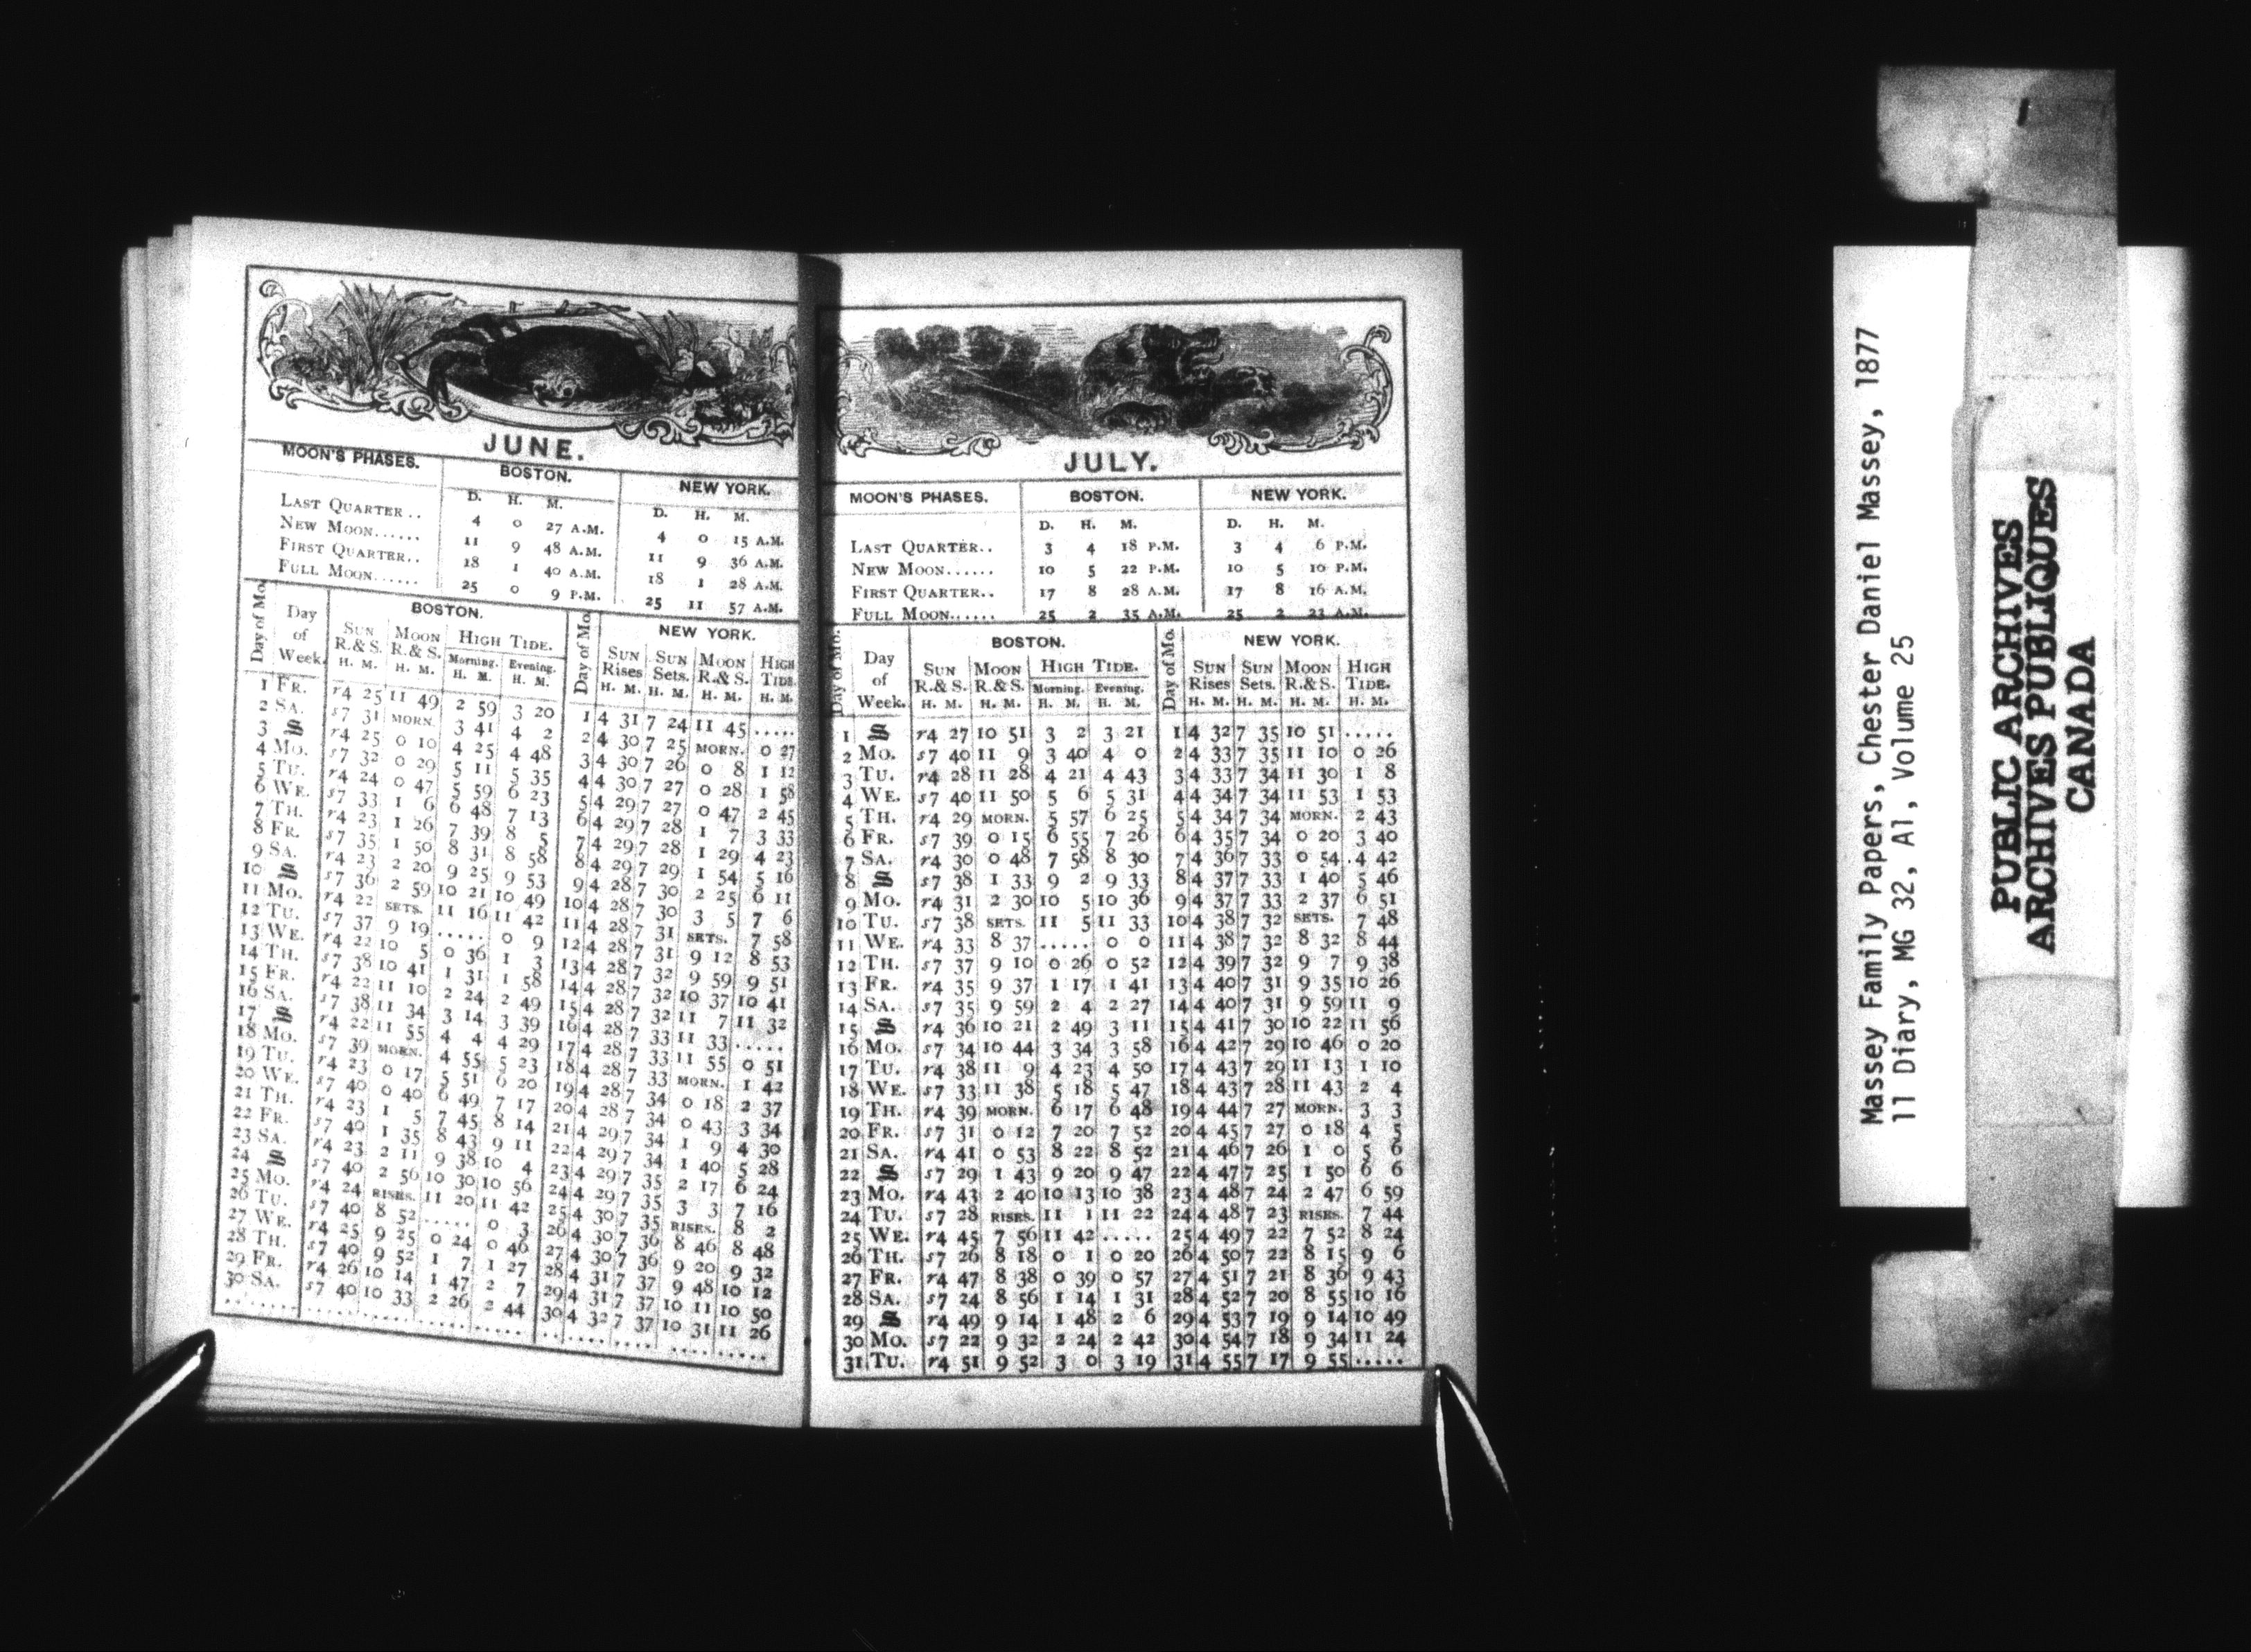 JUNE.
MOON'S PHASES. BOSTON. NEW YORK.
D. H. M. D. H. M.
LAST QUARTER.. 4 0 27 A.M. 4 0 15 A.M.
NEW MOON...... 11 9 48 A.M. 11 9 36 A.M.
FIRST QUARTER.. 18 1 40 A.M. 18 1 28 A.M.
FULL MOON...... 25 0 9 P.M. 25 11 57 A.M.
Day of Mo. Day of Week. BOSTON. Day of Mo. NEW YORK.
SUN R.& S. MOON R.& S. HIGH TIDE. SUN Rises SUN Sets. MOON R.& S. HIGH TIDE.
Morning. Evening.
H. M. H. M. H. M. H. M. H. M. H. M. H. M. H. M.
1 FR. r4 25 11 49 2 59 3 20 1 4 31 7 24 11 45 .....
2 SA. s7 31 MORN. 3 41 4 2 2 4 30 7 25 MORN. 0 27
3 S r4 25 0 10 4 25 4 48 3 4 30 7 26 0 8 1 12
4 MO. s7 32 0 29 5 11 5 35 4 4 30 7 27 0 28 1 58
5 TU. r4 24 0 47 5 59 6 23 5 4 29 7 27 0 47 2 45
6 WE. s7 33 1 6 6 48 7 13 6 4 29 7 28 1 7 3 33
7 TH. r4 23 1 26 7 39 8 5 7 4 29 7 28 1 29 4 23
8 FR. s7 35 1 50 8 31 8 58 8 4 29 7 29 1 54 5 16
9 SA. r4 23 2 20 9 25 9 53 9 4 28 7 30 2 25 6 11
10 S s7 36 2 59 10 21 10 49 10 4 28 7 30 3 5 7 6
11 MO. r4 22 SETS. 11 16 11 42 11 4 28 7 31 SETS. 7 58
12 TU. s7 37 9 19 ..... 0 9 12 4 28 7 31 9 12 8 53
13 WE. r4 22 10 5 0 36 1 3 13 4 28 7 32 9 59 9 51
14 TH. s7 38 10 41 1 31 1 58 14 4 28 7 32 10 37 10 41
15 FR. r4 22 11 10 2 24 2 49 15 4 28 7 32 11 7 11 32
16 SA. s7 38 11 34 3 14 3 39 16 4 28 7 33 11 33 .....
17 S r4 22 11 55 4 4 4 29 17 4 28 7 33 11 55 0 51
18 MO. s7 39 MORN. 4 55 5 23 18 4 28 7 33 MORN. 1 42
19 TU. r4 23 0 17 5 51 6 20 19 4 28 7 34 0 18 2 37
20 WE. s7 40 0 40 6 49 7 17 20 4 28 7 34 0 43 3 34
21 TH. r4 23 1 5 7 45 8 14 21 4 29 7 34 1 9 4 30
22 FR. s7 40 1 35 8 43 9 11 22 4 29 7 34 1 40 5 28
23 SA. r4 23 2 11 9 38 10 4 23 4 29 7 35 2 17 6 24
24 S s7 40 2 56 10 30 10 56 24 4 29 7 35 3 3 7 16
25 MO. r4 24 RISES. 11 20 11 42 25 4 30 7 35 RISES. 8 2
26 TU. s7 40 8 52 ..... 0 3 26 4 30 7 36 8 46 8 48
27 WE. r4 25 9 25 0 24 0 46 27 4 30 7 36 9 20 9 32
28 TH. s7 40 9 52 1 7 1 27 28 4 31 7 37 9 48 10 12
29 FR. r4 26 10 14 1 47 2 7 29 4 31 7 37 10 11 10 50
30 SA. s7 40 10 33 2 26 2 44 30 4 32 7 37 10 31 11 26
JULY.
MOON'S PHASES. BOSTON. NEW YORK.
D. H. M. D. H. M.
LAST QUARTER.. 3 4 18 P.M. 3 4 6 P.M.
NEW MOON...... 10 5 22 P.M. 10 5 10 P.M.
FIRST QUARTER.. 17 8 28 A.M. 17 8 16 A.M.
FULL MOON...... 25 2 35 A.M. 25 2 23 A.M.
Day of Mo. Day of Week. BOSTON. Day of Mo. NEW YORK.
SUN R.& S. MOON R.& S. HIGH TIDE. SUN Rises SUN Sets. MOON R.& S. HIGH TIDE.
Morning. Evening.
H. M. H. M. H. M. H. M. H. M. H. M. H. M. H. M.
1 S r4 27 10 51 3 2 3 21 1 4 32 7 35 10 51 .....
2 MO. s7 40 11 9 3 40 4 0 2 4 33 7 35 11 10 0 26
3 TU. r4 28 11 28 4 21 4 43 3 4 33 7 34 11 30 1 8
4 WE. s7 40 11 50 5 6 5 31 4 4 34 7 34 11 53 1 53
5 TH. r4 29 MORN. 5 57 6 25 5 4 34 7 34 MORN. 2 43
6 FR. s7 39 0 15 6 55 7 26 6 4 35 7 34 0 20 3 40
7 SA. r4 30 0 48 7 58 8 30 7 4 36 7 33 0 54 4 42
8 S s7 38 1 33 9 2 9 33 8 4 37 7 33 1 40 5 46
9 MO. r4 31 2 30 10 5 10 36 9 4 37 7 33 2 37 6 51
10 TU. s7 38 SETS. 11 5 11 33 10 4 38 7 32 SETS. 7 48
11 WE. r4 33 8 37 ..... 0 0 11 4 38 7 32 8 32 8 44
12 TH. s7 37 9 10 0 26 0 52 12 4 39 7 32 9 7 9 38
13 FR. r4 35 9 37 1 17 1 41 13 4 40 7 31 9 35 10 26
14 SA. s7 35 9 59 2 4 2 27 14 4 40 7 31 9 59 11 9
15 S r4 36 10 21 2 49 3 11 15 4 41 7 30 10 22 11 56
16 MO. s7 34 10 44 3 34 3 58 16 4 42 7 29 10 46 0 20
17 TU. r4 38 11 9 4 23 4 50 17 4 43 7 29 11 13 1 10
18 WE. s7 33 11 38 5 18 5 47 18 4 43 7 28 11 43 2 4
19 TH. r4 39 MORN. 6 17 6 48 19 4 44 7 27 MORN. 3 3
20 FR. s7 31 0 12 7 20 7 52 20 4 45 7 27 0 18 4 5
21 SA. r4 41 0 53 8 22 8 52 21 4 46 7 26 1 0 5 6
22 S s7 29 1 43 9 20 9 47 22 4 47 7 25 1 50 6 6
23 MO. r4 43 2 40 10 13 10 38 23 4 48 7 24 2 47 6 59
24 TU. s7 28 RISES. 11 1 11 22 24 4 48 7 23 RISES. 7 44
25 WE. r4 45 7 56 11 42 ..... 25 4 49 7 22 7 52 8 24
26 TH. s7 26 8 18 0 1 0 20 26 4 50 7 22 8 15 9 6
27 FR. r4 47 8 38 0 39 0 57 27 4 51 7 21 8 36 9 43
28 SA. s7 24 8 56 1 14 1 31 28 4 52 7 20 8 55 10 16
29 S r4 49 9 14 1 48 2 6 29 4 53 7 19 9 14 10 49
30 MO. s7 22 9 32 2 24 2 42 30 4 54 7 18 9 34 11 24
31 TU. r4 51 9 52 3 0 3 19 31 4 55 7 17 9 55 .....
Massey Family Papers, Chester Daniel Massey, 1877
11 Diary, MG 32, A1, Volume 25
PUBLIC ARCHIVES
ARCHIVES PUBLIQUES
CANADA